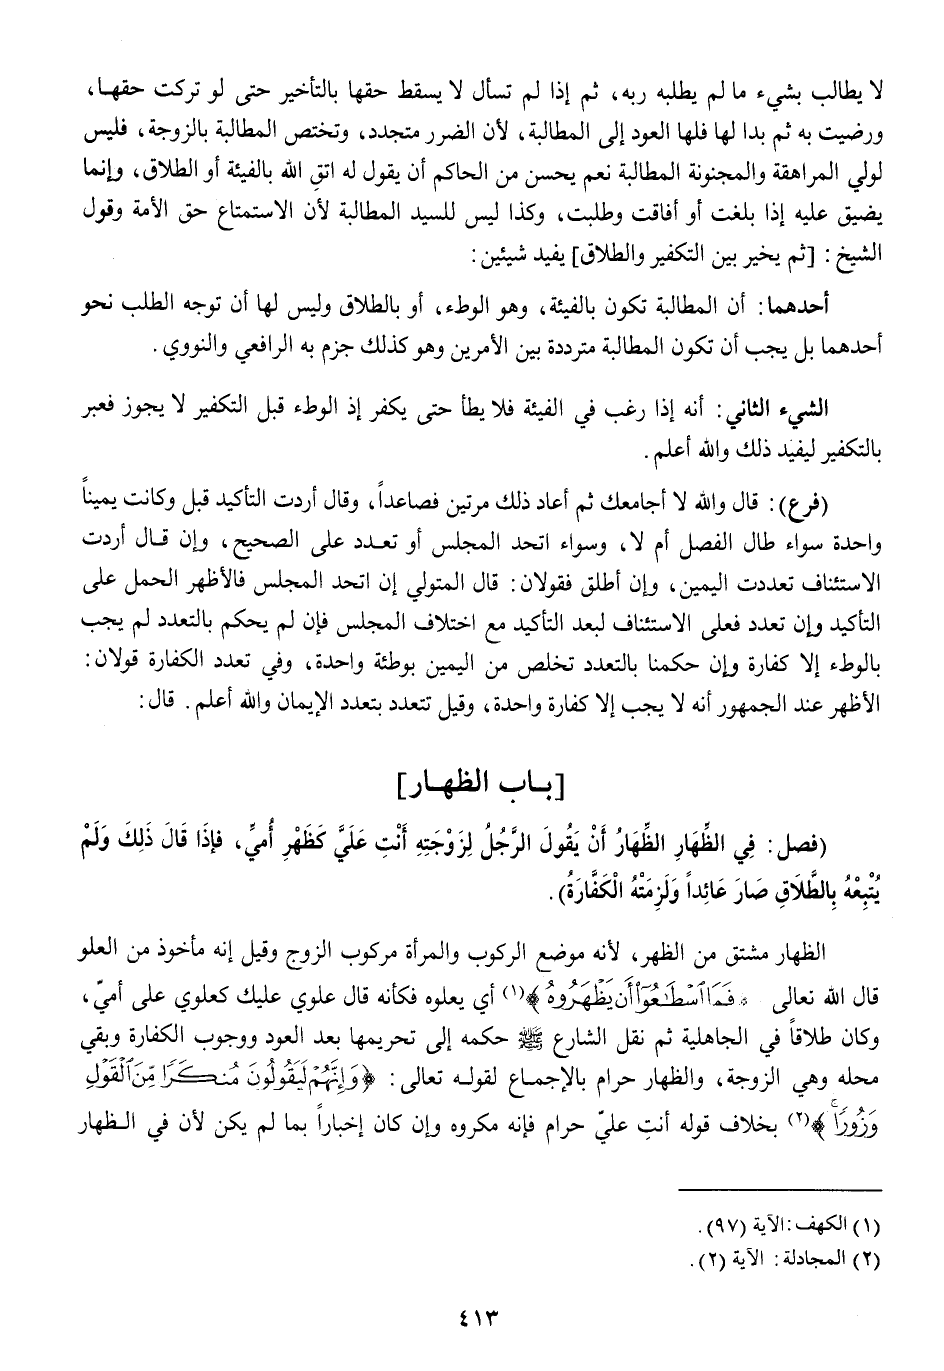 لا يطالب بشيء ما لم يطلبه ربه، ثم إذا لم تسأل لا يسقط حقها بالتأخير حتى لو تركت حقها،
ورضيت به ثم بدا لها فلها العود إلى المطالبة، لأن الضرر متجدد، وتختص المطالبة بالزوجة، فليس
لولي المراهقة والمجنونة المطالبة نعم يحسن من الحاكم أن يقول له اتقِ الله بالفيئة أو الطلاق، وإنما
يضيق عليه إذا بلغت أو أفاقت وطلبت، وكذا ليس للسيد المطالبة لأن الاستمتاع حق الأمة وقول
الشيخ: [ثم يخير بين التكفير والطلاق] يفيد شيئين:
أحدهما: أن المطالبة تكون بالفيئة، وهو الوطء، أو بالطلاق وليس لها أن توجه الطلب نحو
أحدهما بل يجب أن تكون المطالبة مترددة بين الأمرين وهو كذلك جزم به الرافعي والنووي.
الشيء الثاني: أنه إذا رغب في الفيئة فلا يطأ حتى يكفر إذ الوطء قبل التكفير لا يجوز فعبر
بالتكفير ليفيد ذلك والله أعلم.
(فرع): قال والله لا أجامعك ثم أعاد ذلك مرتين فصاعداً، وقال أردت التأكيد قبل وكانت يميناً
واحدة سواء طال الفصل أم لا، وسواء اتحد المجلس أو تعدد على الصحيح، وإن قال أردت
الاستئناف تعددت اليمين، وإن أطلق فقولان: قال المتولي إن اتحد المجلس فالأظهر الحمل على
التأكيد وإن تعدد فعلى الاستئناف لبعد التأكيد مع اختلاف المجلس فإن لم يحكم بالتعدد لم يجب
بالوطء إلا كفارة وإن حكمنا بالتعدد تخلص من اليمين بوطئة واحدة، وفي تعدد الكفارة قولان:
الأظهر عند الجمهور أنه لا يجب إلا كفارة واحدة، وقيل تتعدد بتعدد الإيمان والله أعلم. قال:
[باب الظهار]
(فصل: فِي الظِّهَارِ الظِّهَارُ أَنْ يَقُولَ الرَّجُلُ لِزَوْجَتِهِ أَنْتِ عَلَيَّ كَظَهْرِ أُميِّ، فإذَا قَالَ ذَلِكَ وَلَمْ
يُتْبِعْهُ بِالطَّلَاقِ صَارَ عَائِداً وَلَزِمَتْهُ الْكَفَّارَةُ).
الظهار مشتق من الظهر، لأنه موضع الركوب والمرأة مركوب الزوج وقيل إنه مأخوذ من العلو
قال الله تعالى ﴿فَمَا ٱسْطَـٰعُوٓا۟ أَن يَظْهَرُوهُ﴾(١) أي يعلوه فكأنه قال علوي عليك كعلوي على أميّ،
وكان طلاقاً في الجاهلية ثم نقل الشارع ﷺ حكمه إلى تحريمها بعد العود ووجوب الكفارة وبقي
محله وهي الزوجة، والظهار حرام بالإجماع لقوله تعالى: ﴿وَإِنَّهُمْ لَيَقُولُونَ مُنكَرًا مِّنَ ٱلْقَوْلِ
وَزُورًا﴾(٢) بخلاف قوله أنتِ عليّ حرام فإنه مكروه وإن كان إخباراً بما لم يكن لأن في الظهار
(١) الكهف: الآية (٩٧).
(٢) المجادلة: الآية (٢).
٤١٣